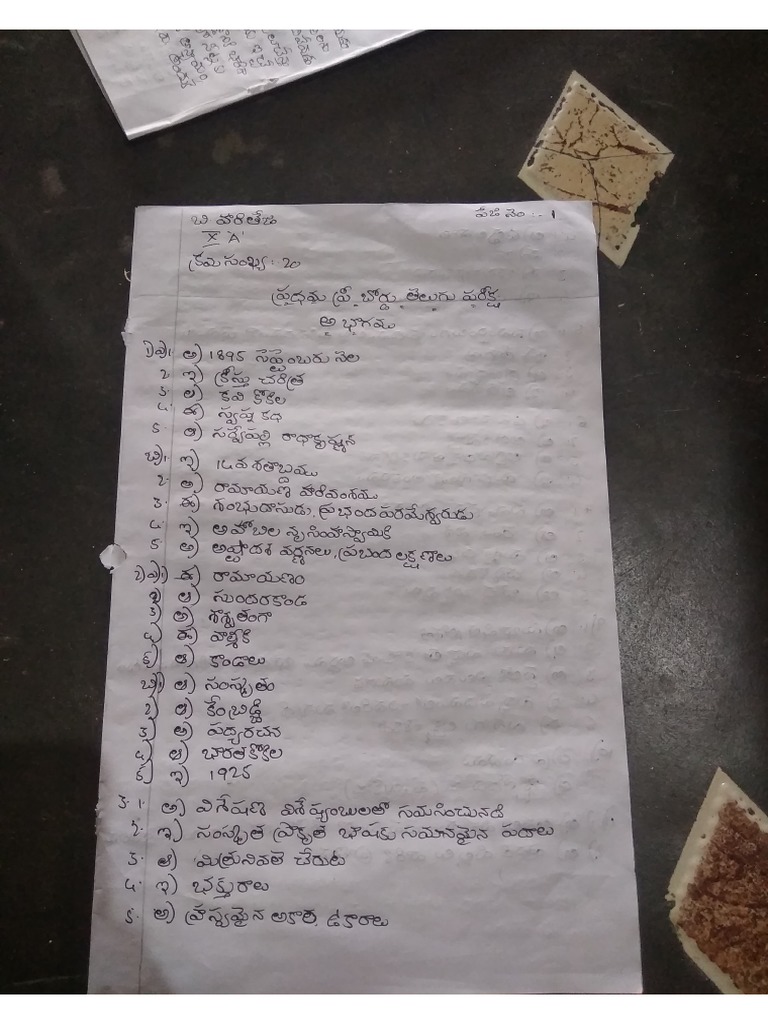 బి హరితేజ
పేజి నెం :- 1
X 'A'
క్రమ సంఖ్య : 20
ప్రథమ ప్రీ బోర్డు తెలుగు పరీక్ష
అ భాగము
1) అ) 1. అ) 1895 సెప్టెంబరు నెల
2. ఇ) క్రీస్తు చరిత్ర
3. ఆ) కవి కోకిల
4. ఈ) స్వప్న కథ
5. ఆ) సర్వేపల్లి రాధాకృష్ణన్
బి) 1. ఇ) 14వ శతాబ్దము
2. అ) రామాయణ హరివంశము
3. ఈ) శంభుదాసుడు, ప్రభంద పరమేశ్వరుడు
4. ఇ) అహోబిల నృసింహస్వామికి
5. అ) అష్టాదశ వర్ణనలు, ప్రబంద లక్షణాలు
2) అ) 1) ఈ) రామాయణం
2) ఆ) సుందరకాండ
3) అ) శాశ్వతంగా
4) ఈ) వాల్మీకి
5) ఆ) కాండాలు
బి) 1) ఆ) సంస్కృతం
2) ఆ) కేంబ్రిడ్జి
3) అ) పద్యరచన
4) ఆ) భారత కోకిల
5) ఇ) 1925
3. 1. అ) విశేషణ విశేష్యంబులతో సమసించునది
2. ఇ) సంస్కృత ప్రాకృత భాషకు సమానమైన పదాలు
3. ఆ) మిత్రునివలె చేరుట
4. ఇ) భక్తురాలు
5. అ) హ్రస్వమైన అకార, ఉకారాలు